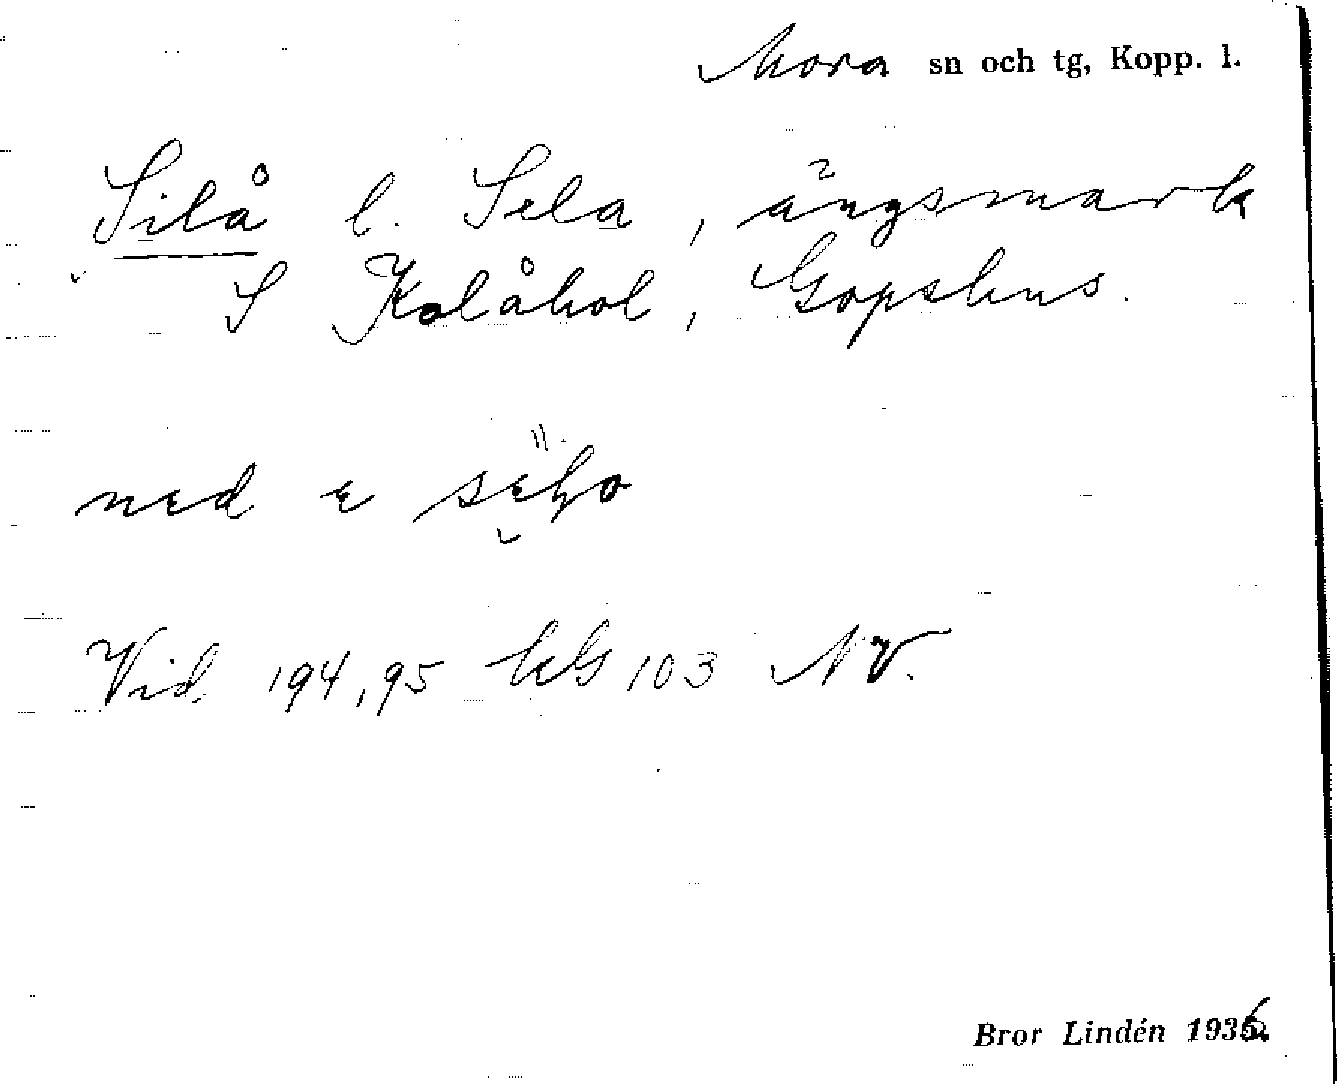 Mora sn och tg, Kopp. l.
Silå l. Sela, ängsmark
S Kolåhol, Gopshus.
ned ɛ
Vid 194,95 hG 103 NV.
Bror Lindén 1936.